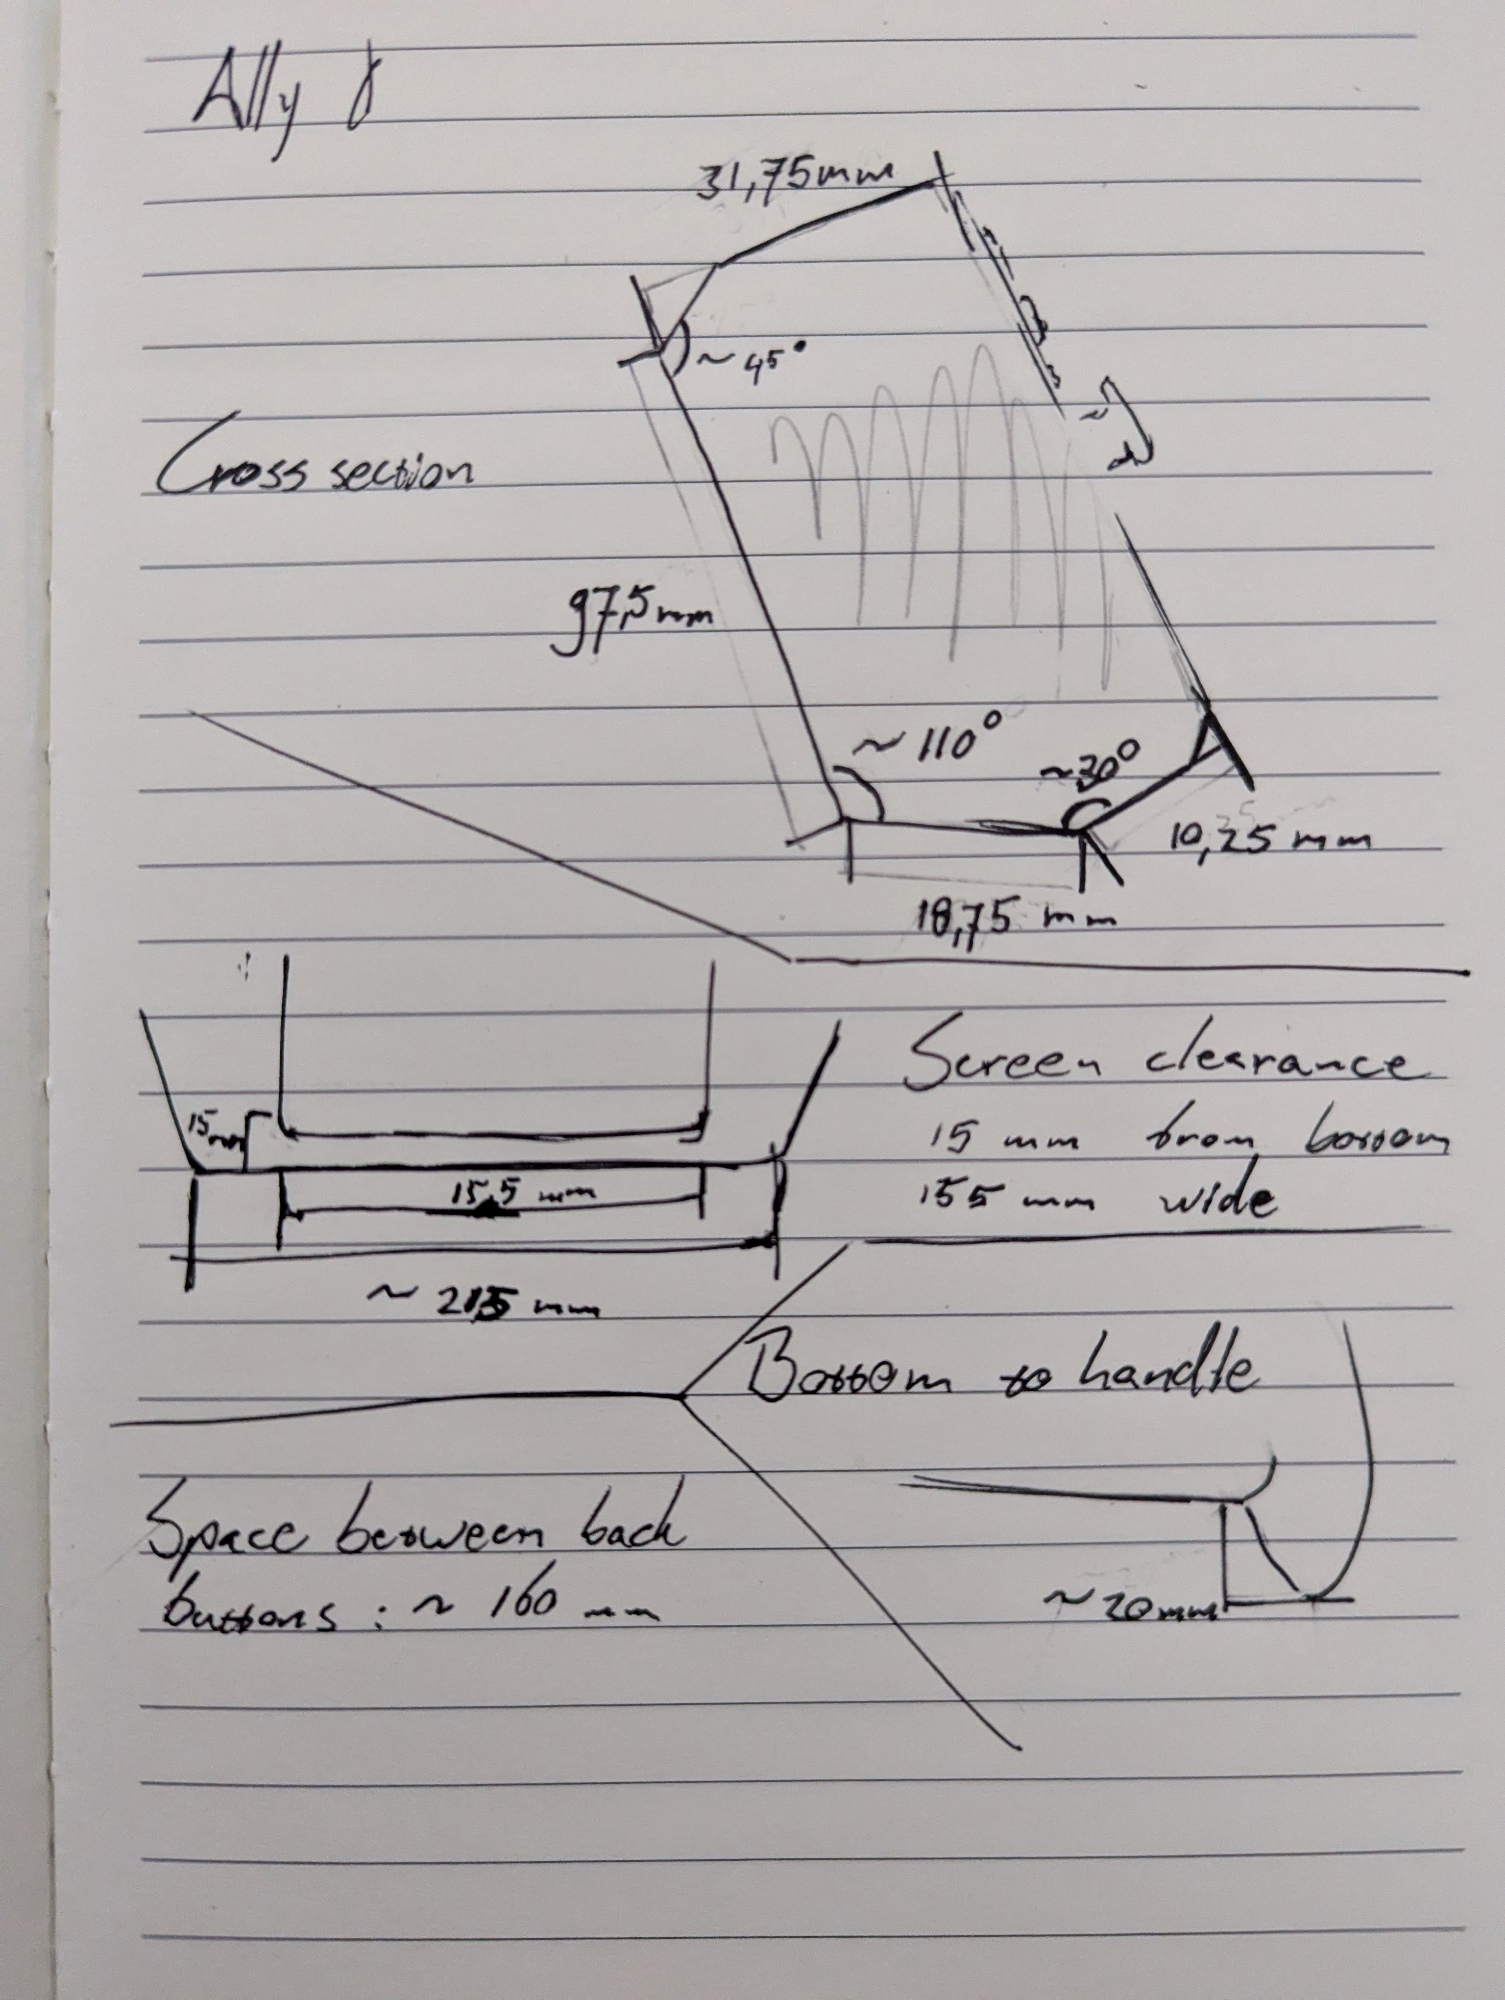 Ally
31,75mm
~ 45°
Cross section
97,5mm
~ 110°
~30°
10,25 mm
18,75 mm
Screen clearance
15mm
15 mm from bottom
155 mm
155 mm wide
~ 215 mm
Bottom to handle
Space between back
buttons : ~ 160 mm
~ 20mm